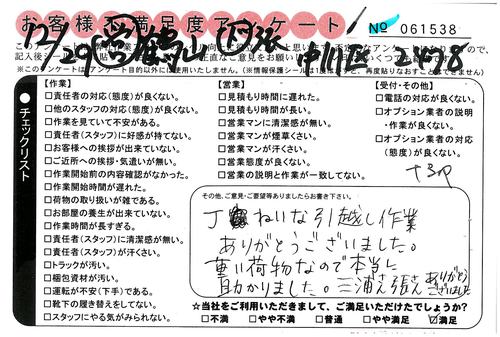 お客様不満足度アンケート
№ 061538
中川区
※このアンケートはアンケート目的以外には使用いたしません。(※情報保護シールは1度はがすと、再度貼りなおすことはできません)
●チェックリスト
【作業】
□責任者の対応(態度)が良くない。
□他のスタッフの対応(態度)が良くない。
□作業を見ていて不安がある。
□責任者(スタッフ)に好感が持てない。
□お客様への挨拶が出来ていない。
□ご近所への挨拶・気遣いが無い。
□作業開始前の内容確認がなかった。
□作業開始時間が遅れた。
□荷物の取り扱いが雑である。
□お部屋の養生が出来ていない。
□作業時間が長すぎる。
□責任者(スタッフ)に清潔感が無い。
□責任者(スタッフ)が汗くさい。
□トラックが汚い。
□梱包資材が汚い。
□運転が不安(下手)である。
□靴下の履き替えをしてない。
□スタッフにやる気がみられない。
【営業】
□見積もり時間に遅れた。
□見積もり時間が長い。
□営業マンに清潔感が無い。
□営業マンが煙草くさい。
□営業マンが汗くさい。
□営業態度が良くない。
□営業の説明と作業が一致してない。
【受付・その他】
□電話の対応が良くない。
□オプション業者の説明
・作業が良くない。
□オプション業者の対応
(態度)が良くない。
その他、ご意見・ご要望等ありましたらお書き下さい。
丁ねいな引越し作業
ありがとうございました。
重い荷物なので本当に
助かりました。三浦さん張さん ありがとう
ございました
☆当社をご利用いただきまして、ご満足いただけたでしょうか?
□不満 □やや不満 □普通 □やや満足 ☑満足